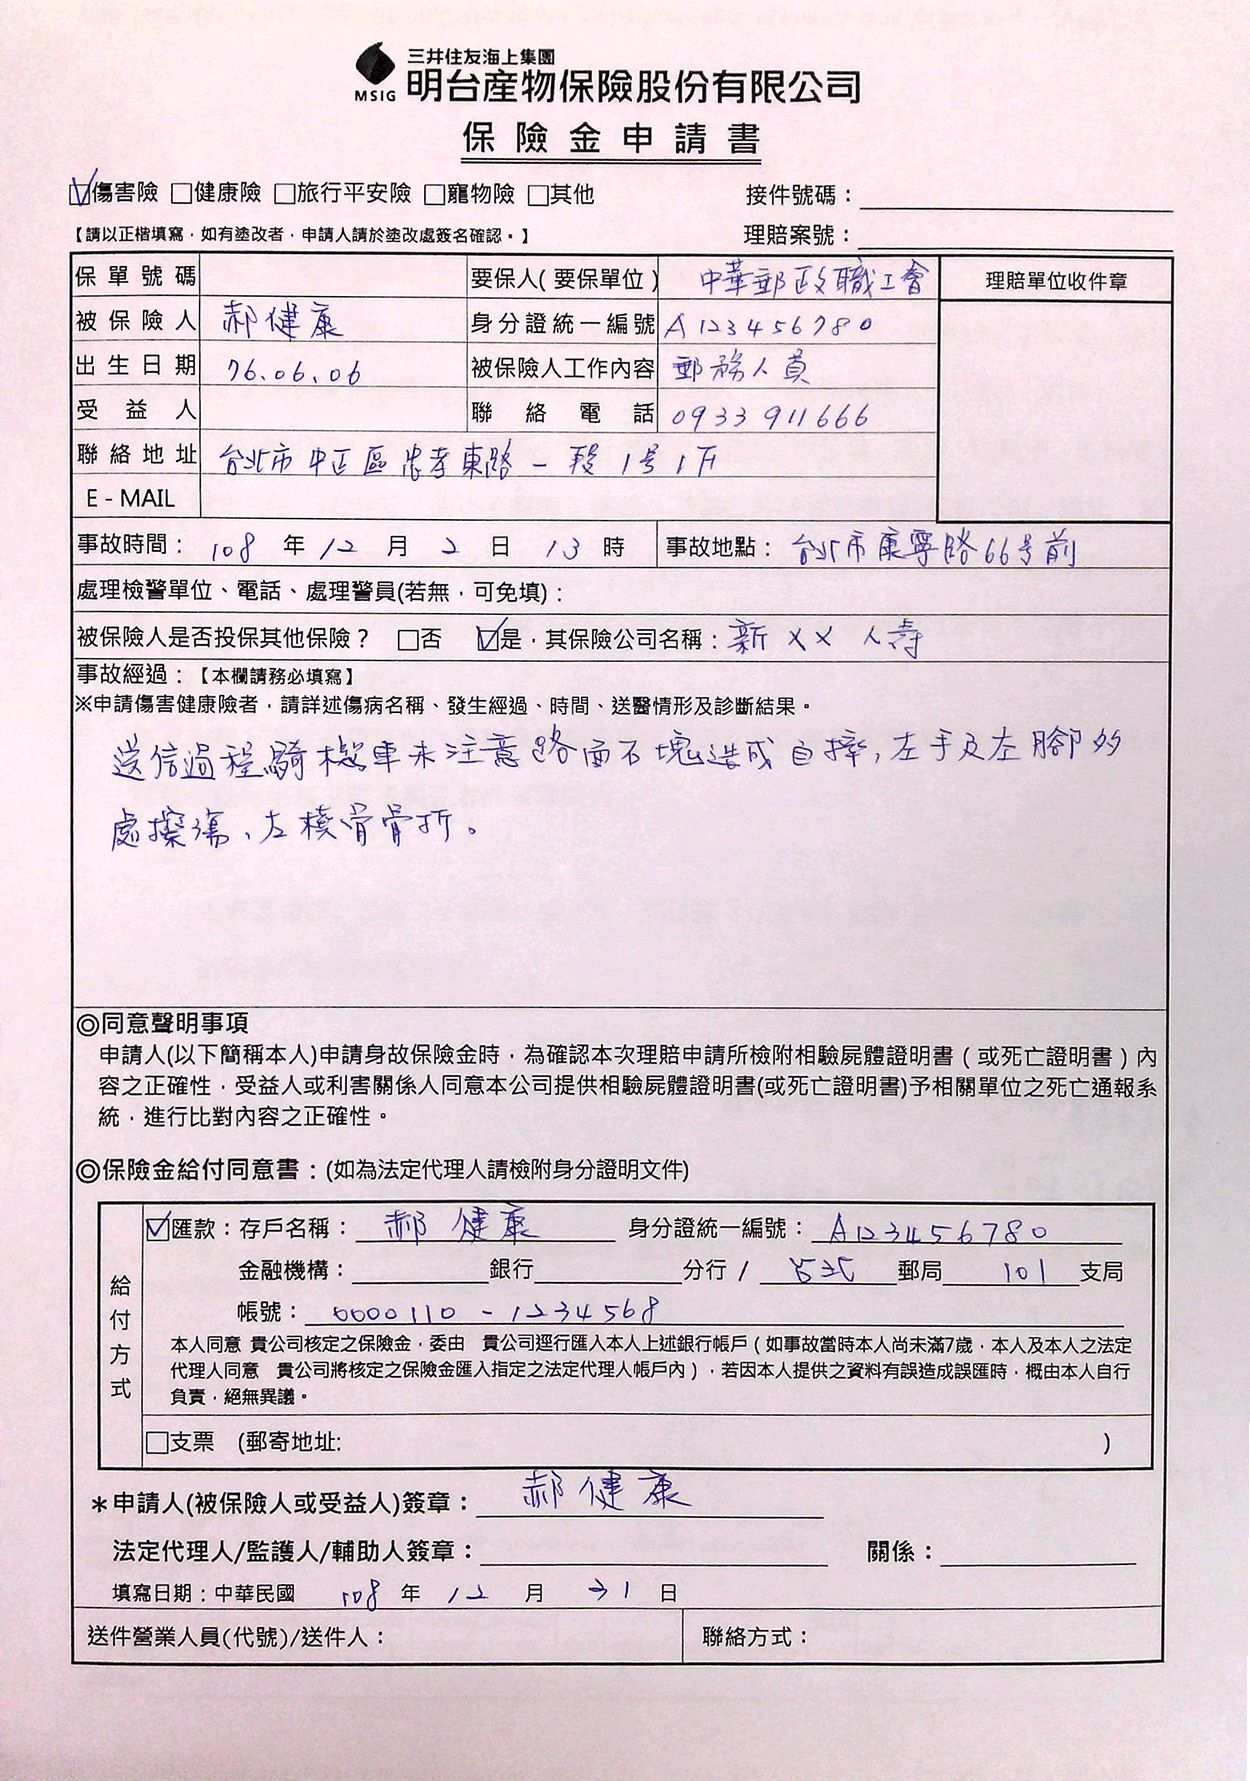 三井住友海上集團
MSIG 明台產物保險股份有限公司
保險金申請書
☑傷害險 □健康險 □旅行平安險 □寵物險 □其他 接件號碼：
【請以正楷填寫，如有塗改者，申請人請於塗改處簽名確認。】 理賠案號：
保單號碼 要保人(要保單位) 中華郵政職工會 理賠單位收件章
被保險人 郝健康 身分證統一編號 A123456780
出生日期 76.06.06 被保險人工作內容 郵務人員
受益人 聯絡電話 0933911666
聯絡地址 台北市中正區忠孝東路一段1号1F
E-MAIL
事故時間：108年12月2日13時 事故地點：台北市康寧路66号前
處理檢警單位、電話、處理警員(若無，可免填)：
被保險人是否投保其他保險？ □否 ☑是，其保險公司名稱：新xx人壽
事故經過：【本欄請務必填寫】
※申請傷害健康險者，請詳述傷病名稱、發生經過、時間、送醫情形及診斷結果。
送信過程騎機車未注意路面石塊造成自摔，左手及左腳多
處擦傷、左橈骨骨折。
◎同意聲明事項
申請人(以下簡稱本人)申請身故保險金時，為確認本次理賠申請所檢附相驗屍體證明書（或死亡證明書）內
容之正確性，受益人或利害關係人同意本公司提供相驗屍體證明書(或死亡證明書)予相關單位之死亡通報系
統，進行比對內容之正確性。
◎保險金給付同意書：(如為法定代理人請檢附身分證明文件)
給付方式
☑匯款：存戶名稱：郝健康 身分證統一編號：A123456780
金融機構： 銀行 分行 / 台北 郵局 101 支局
帳號：0000110-1234568
本人同意 貴公司核定之保險金，委由 貴公司逕行匯入本人上述銀行帳戶（如事故當時本人尚未滿7歲，本人及本人之法定
代理人同意 貴公司將核定之保險金匯入指定之法定代理人帳戶內），若因本人提供之資料有誤造成誤匯時，概由本人自行
負責，絕無異議。
□支票 (郵寄地址: )
＊申請人(被保險人或受益人)簽章：郝健康
法定代理人/監護人/輔助人簽章： 關係：
填寫日期：中華民國 108 年 12 月 31 日
送件營業人員(代號)/送件人： 聯絡方式：